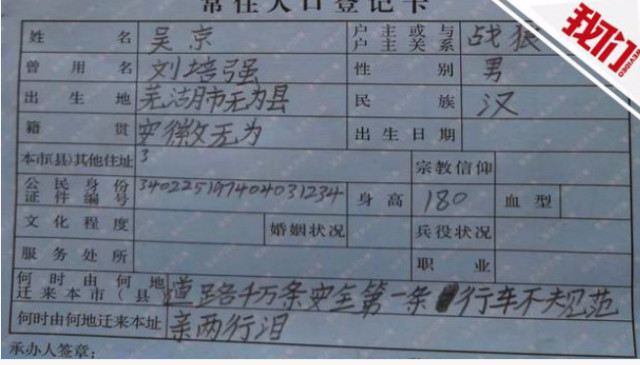 常住人口登记卡
姓名 吴京 户主或与户主关系 战狼
曾用名 刘培强 性别 男
出生地 芜湖市无为县 民族 汉
籍贯 安徽无为 出生日期
本市(县)其他住址 3 宗教信仰
公民身份证件编号 340225197404031234 身高 180 血型
文化程度 婚姻状况 兵役状况
服务处所 职业
何时由何地迁来本市(县 道路千万条安全第一条 行车不夫见范
何时由何地迁来本址 亲两行泪
承办人签章:
我们